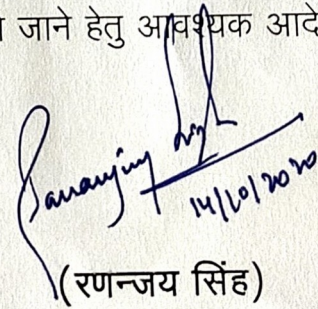 जाने हेतु आवश्यक आदे
Rananjay Singh
14/10/2020
(रणन्जय सिंह)